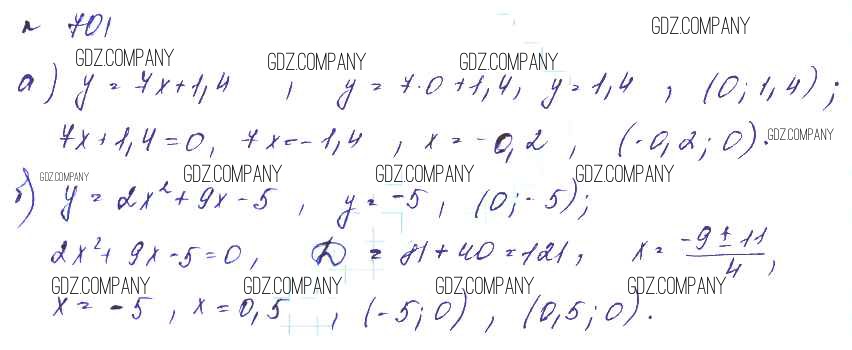 № 701 GDZ.COMPANY
GDZ.COMPANY GDZ.COMPANY GDZ.COMPANY
а) y = 7x+1,4 , y = 7·0+1,4, y = 1,4 , (0; 1,4);
7x+1,4=0, 7x=-1,4 , x = -0,2 , (-0,2; 0). GDZ.COMPANY
GDZ.COMPANY GDZ.COMPANY GDZ.COMPANY GDZ.COMPANY
б) y = 2x²+9x-5 , y = -5 , (0; -5);
2x²+9x-5=0, D = 81+40=121, x = (-9±11)/4,
GDZ.COMPANY GDZ.COMPANY GDZ.COMPANY GDZ.COMPANY
x = -5 , x = 0,5 , (-5; 0) , (0,5; 0).